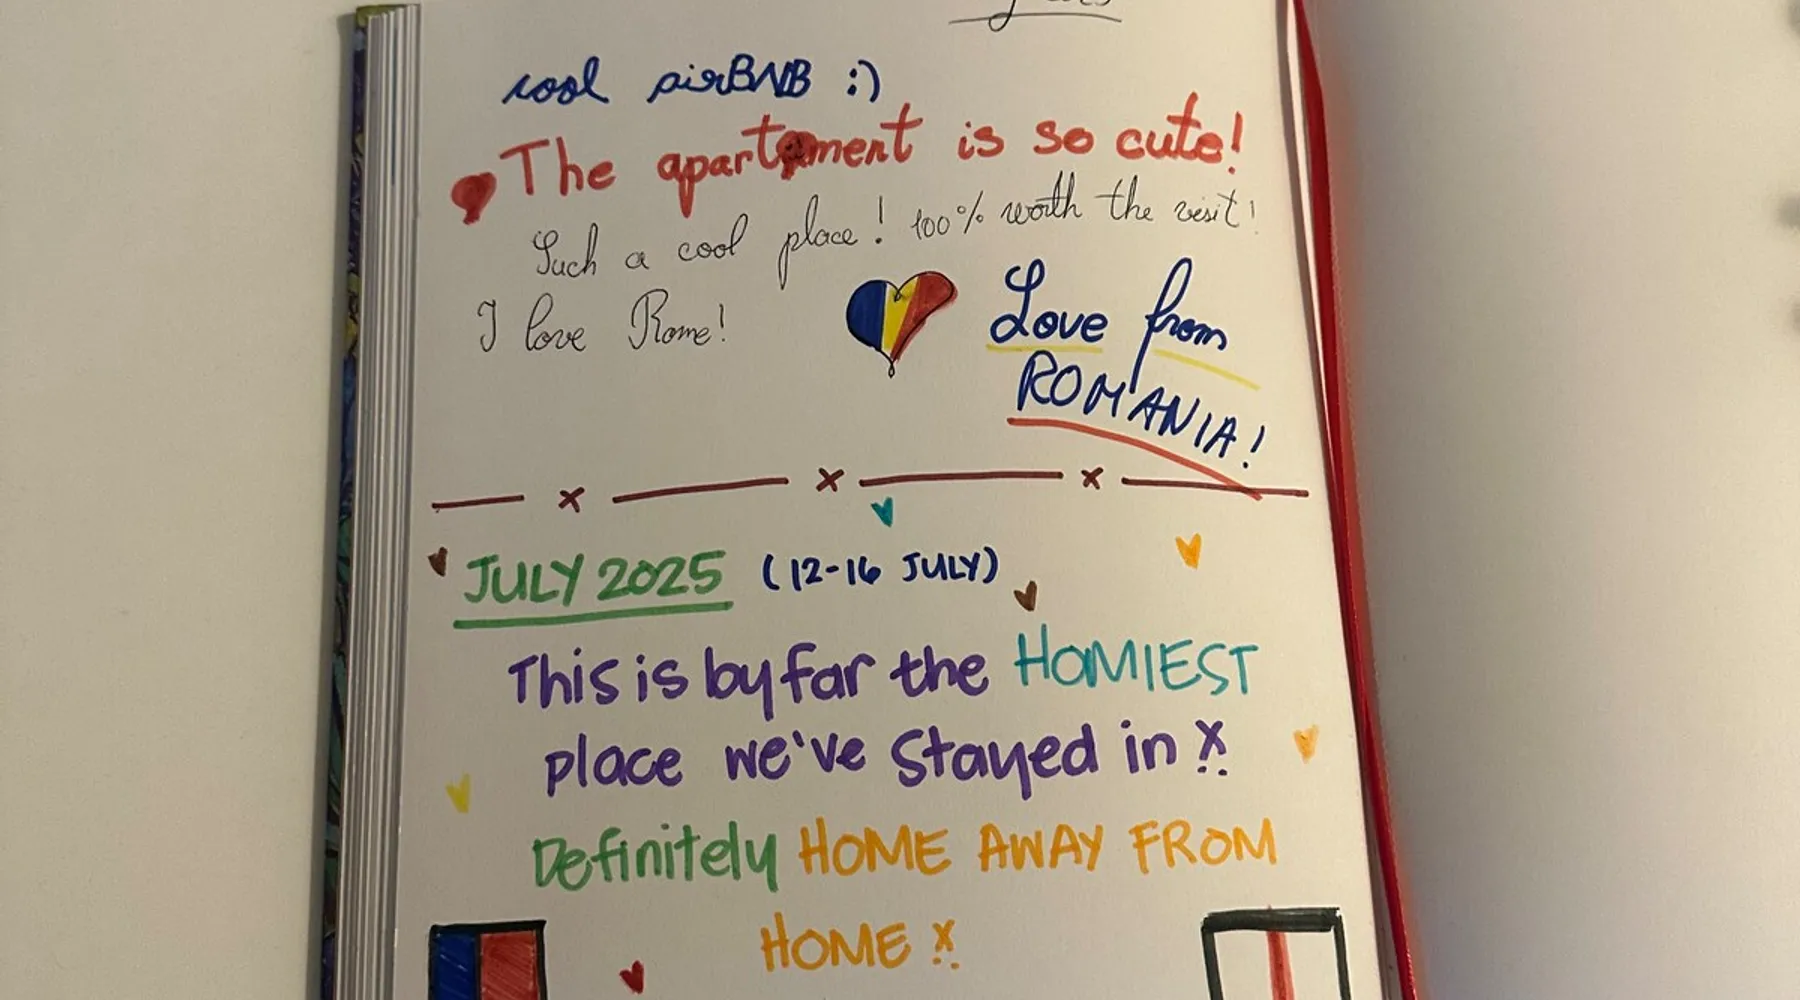 cool airBNB :)
The apartament is so cute!
Such a cool place! 100% worth the visit!
I love Rome!
Love from
ROMANIA!
JULY 2025 (12-16 JULY)
This is by far the HOMIEST
place we've stayed in x
Definitely HOME AWAY FROM
HOME x